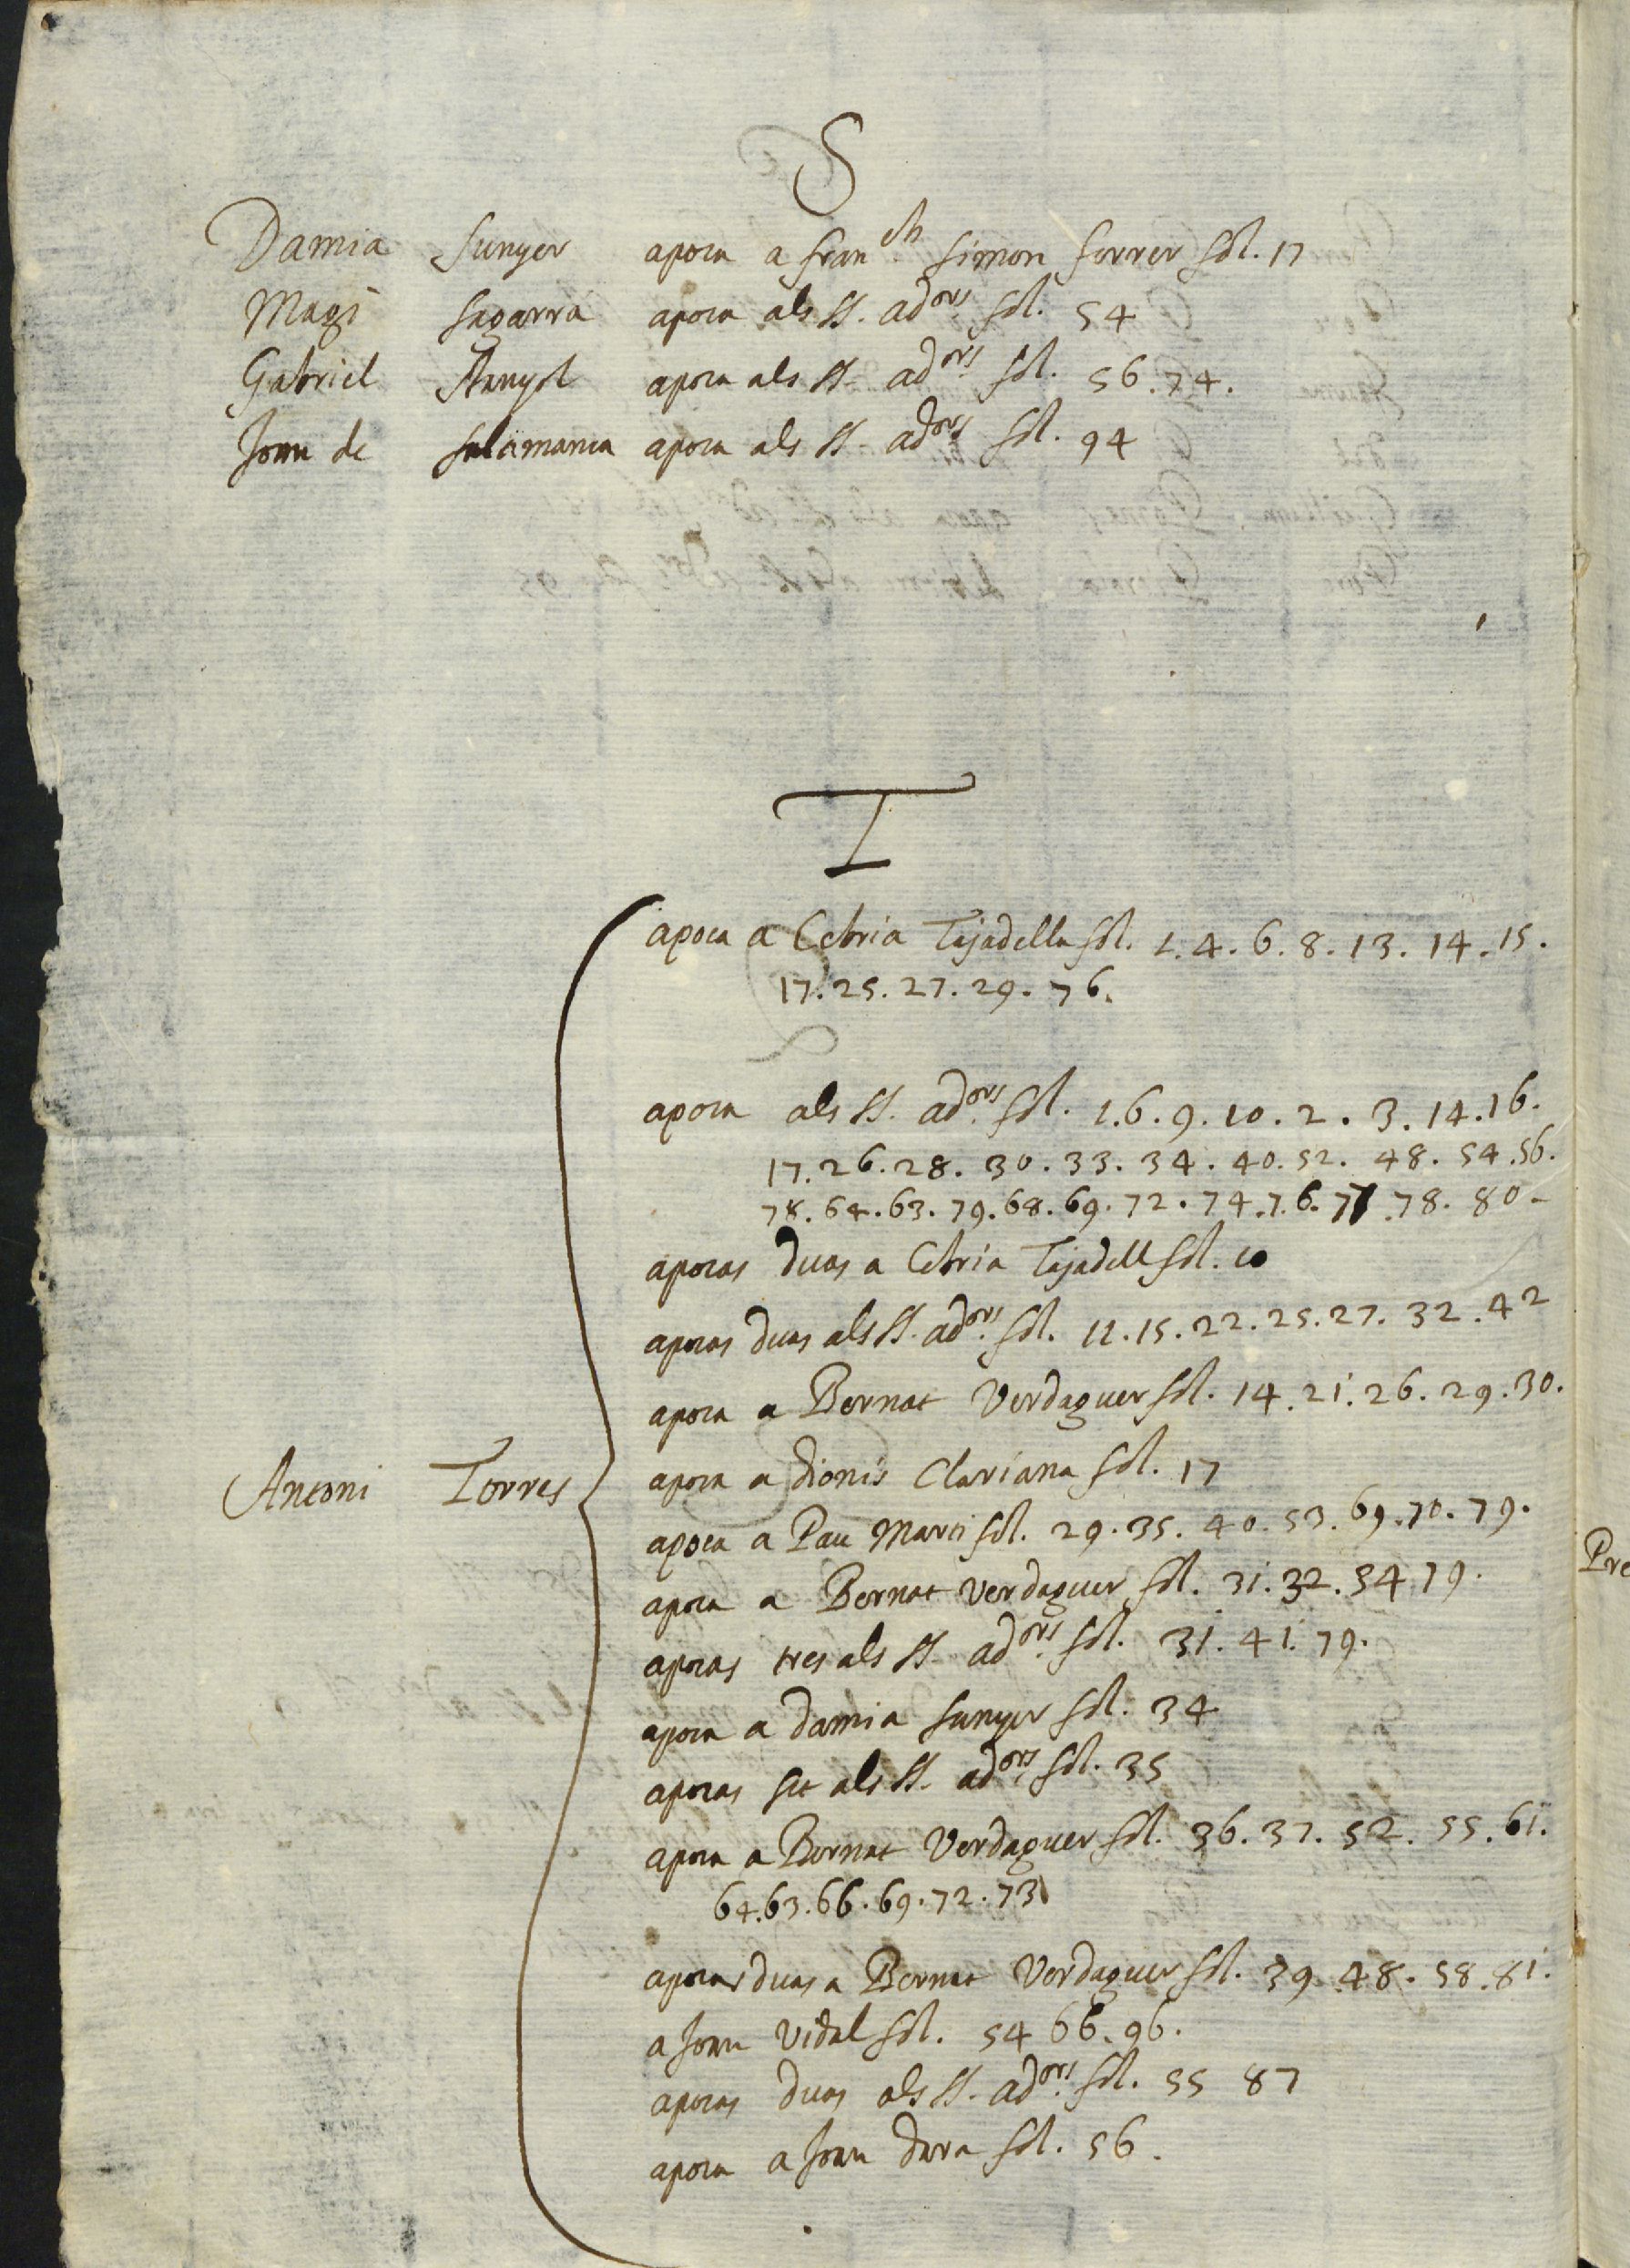 S
Damia Sunyer apoca a fran.ch Simon ferrer fol. 17
Magi Sagarra apoca als SS. adors fol. 54
Gabriel apoca als SS. adors fol. 56. 74.
Joan de Salamanca apoca als SS. adors fol. 94
T
apoca a Cebria Tajadella fol. 1. 4. 6. 8. 13. 14. 15.
17. 25. 27. 29. 76.
apoca als SS. adors fol. 1. 6. 9. 10. 2. 3. 14. 16.
17. 26. 28. 30. 33. 34. 40. 52. 48. 54. 56.
78. 64. 63. 79. 68. 69. 72. 74. 76. 77. 78. 80
apocas duas a Cebria Tajadell fol. 10
apocas duas als SS. adors fol. 11. 15. 22. 25. 27. 32. 42
apoca a Bernat Verdaguer fol. 14. 21. 26. 29. 30.
Antoni Torres apoca a dionis Clariana fol. 17
apoca a Pau Marti fol. 29. 35. 40. 53. 69. 70. 79.
Pre
apoca a Bernat verdaguer fol. 31. 32. 34 79.
apocas tres als SS. adors fol. 31. 41. 79.
apoca a damia Sunyer fol. 34
apocas set als SS. adors fol. 35
apoca a Bernat Verdaguer fol. 36. 37. 52. 55. 61.
64. 63. 66. 69. 72. 73
apocas duas a Bernat Verdaguer fol. 39. 48. 58. 81.
a Joan Vidal fol. 54 66. 96.
apocas duas als SS. adors fol. 55 87
apoca a Joan dura fol. 56.